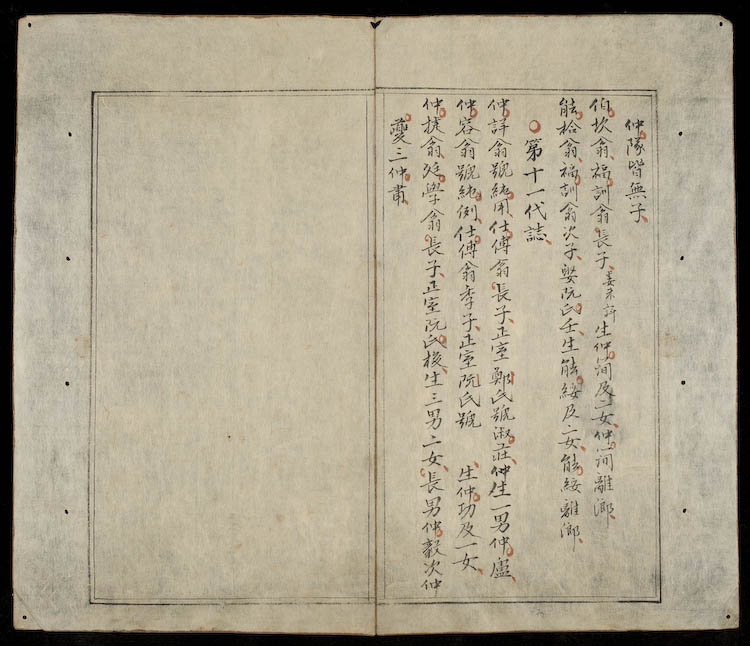 仲隊皆無子
伯坎翁福訓翁長子妾未詳生仲筒及二女仲筒離鄉
能拾翁福訓翁次子娶阮氏壬生能綏及二女能綏離鄉
○第十一代誌
仲詳翁號純用仕傅翁長子正室鄭氏號淑莊仲生一男仲盧
仲容翁號純例仕傅翁季子正室阮氏號 生仲功及一女
仲捷翁廷學翁長子正室阮氏梭生三男二女長男仲毅次仲
夔三仲肅